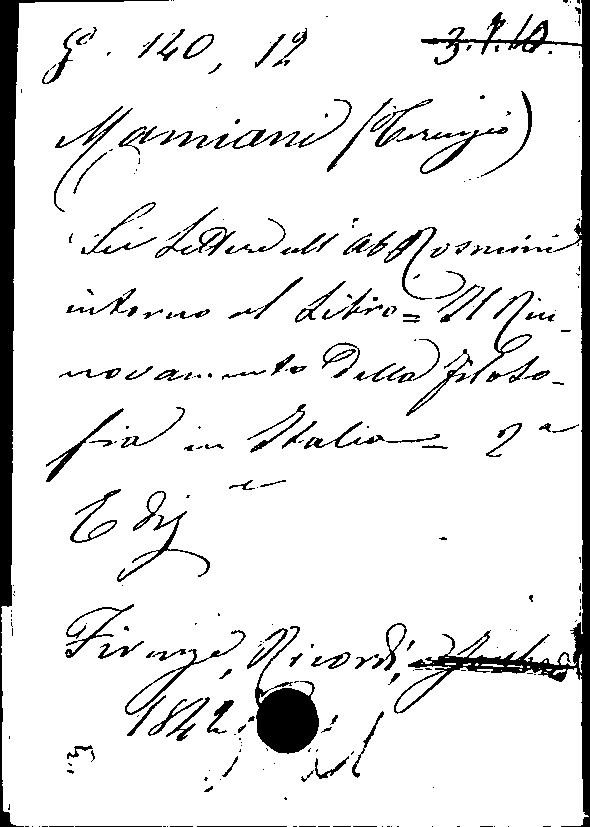 Gd. 140, 12 3.7.10.
Mamiani (Terenzio)
Sei Lettere all'ab Rosmini
intorno al Libro = Il Rin-
novamento della filoso-
fia in Italia = 2a
Ediz ne
Firenze, Ricordi,
1842